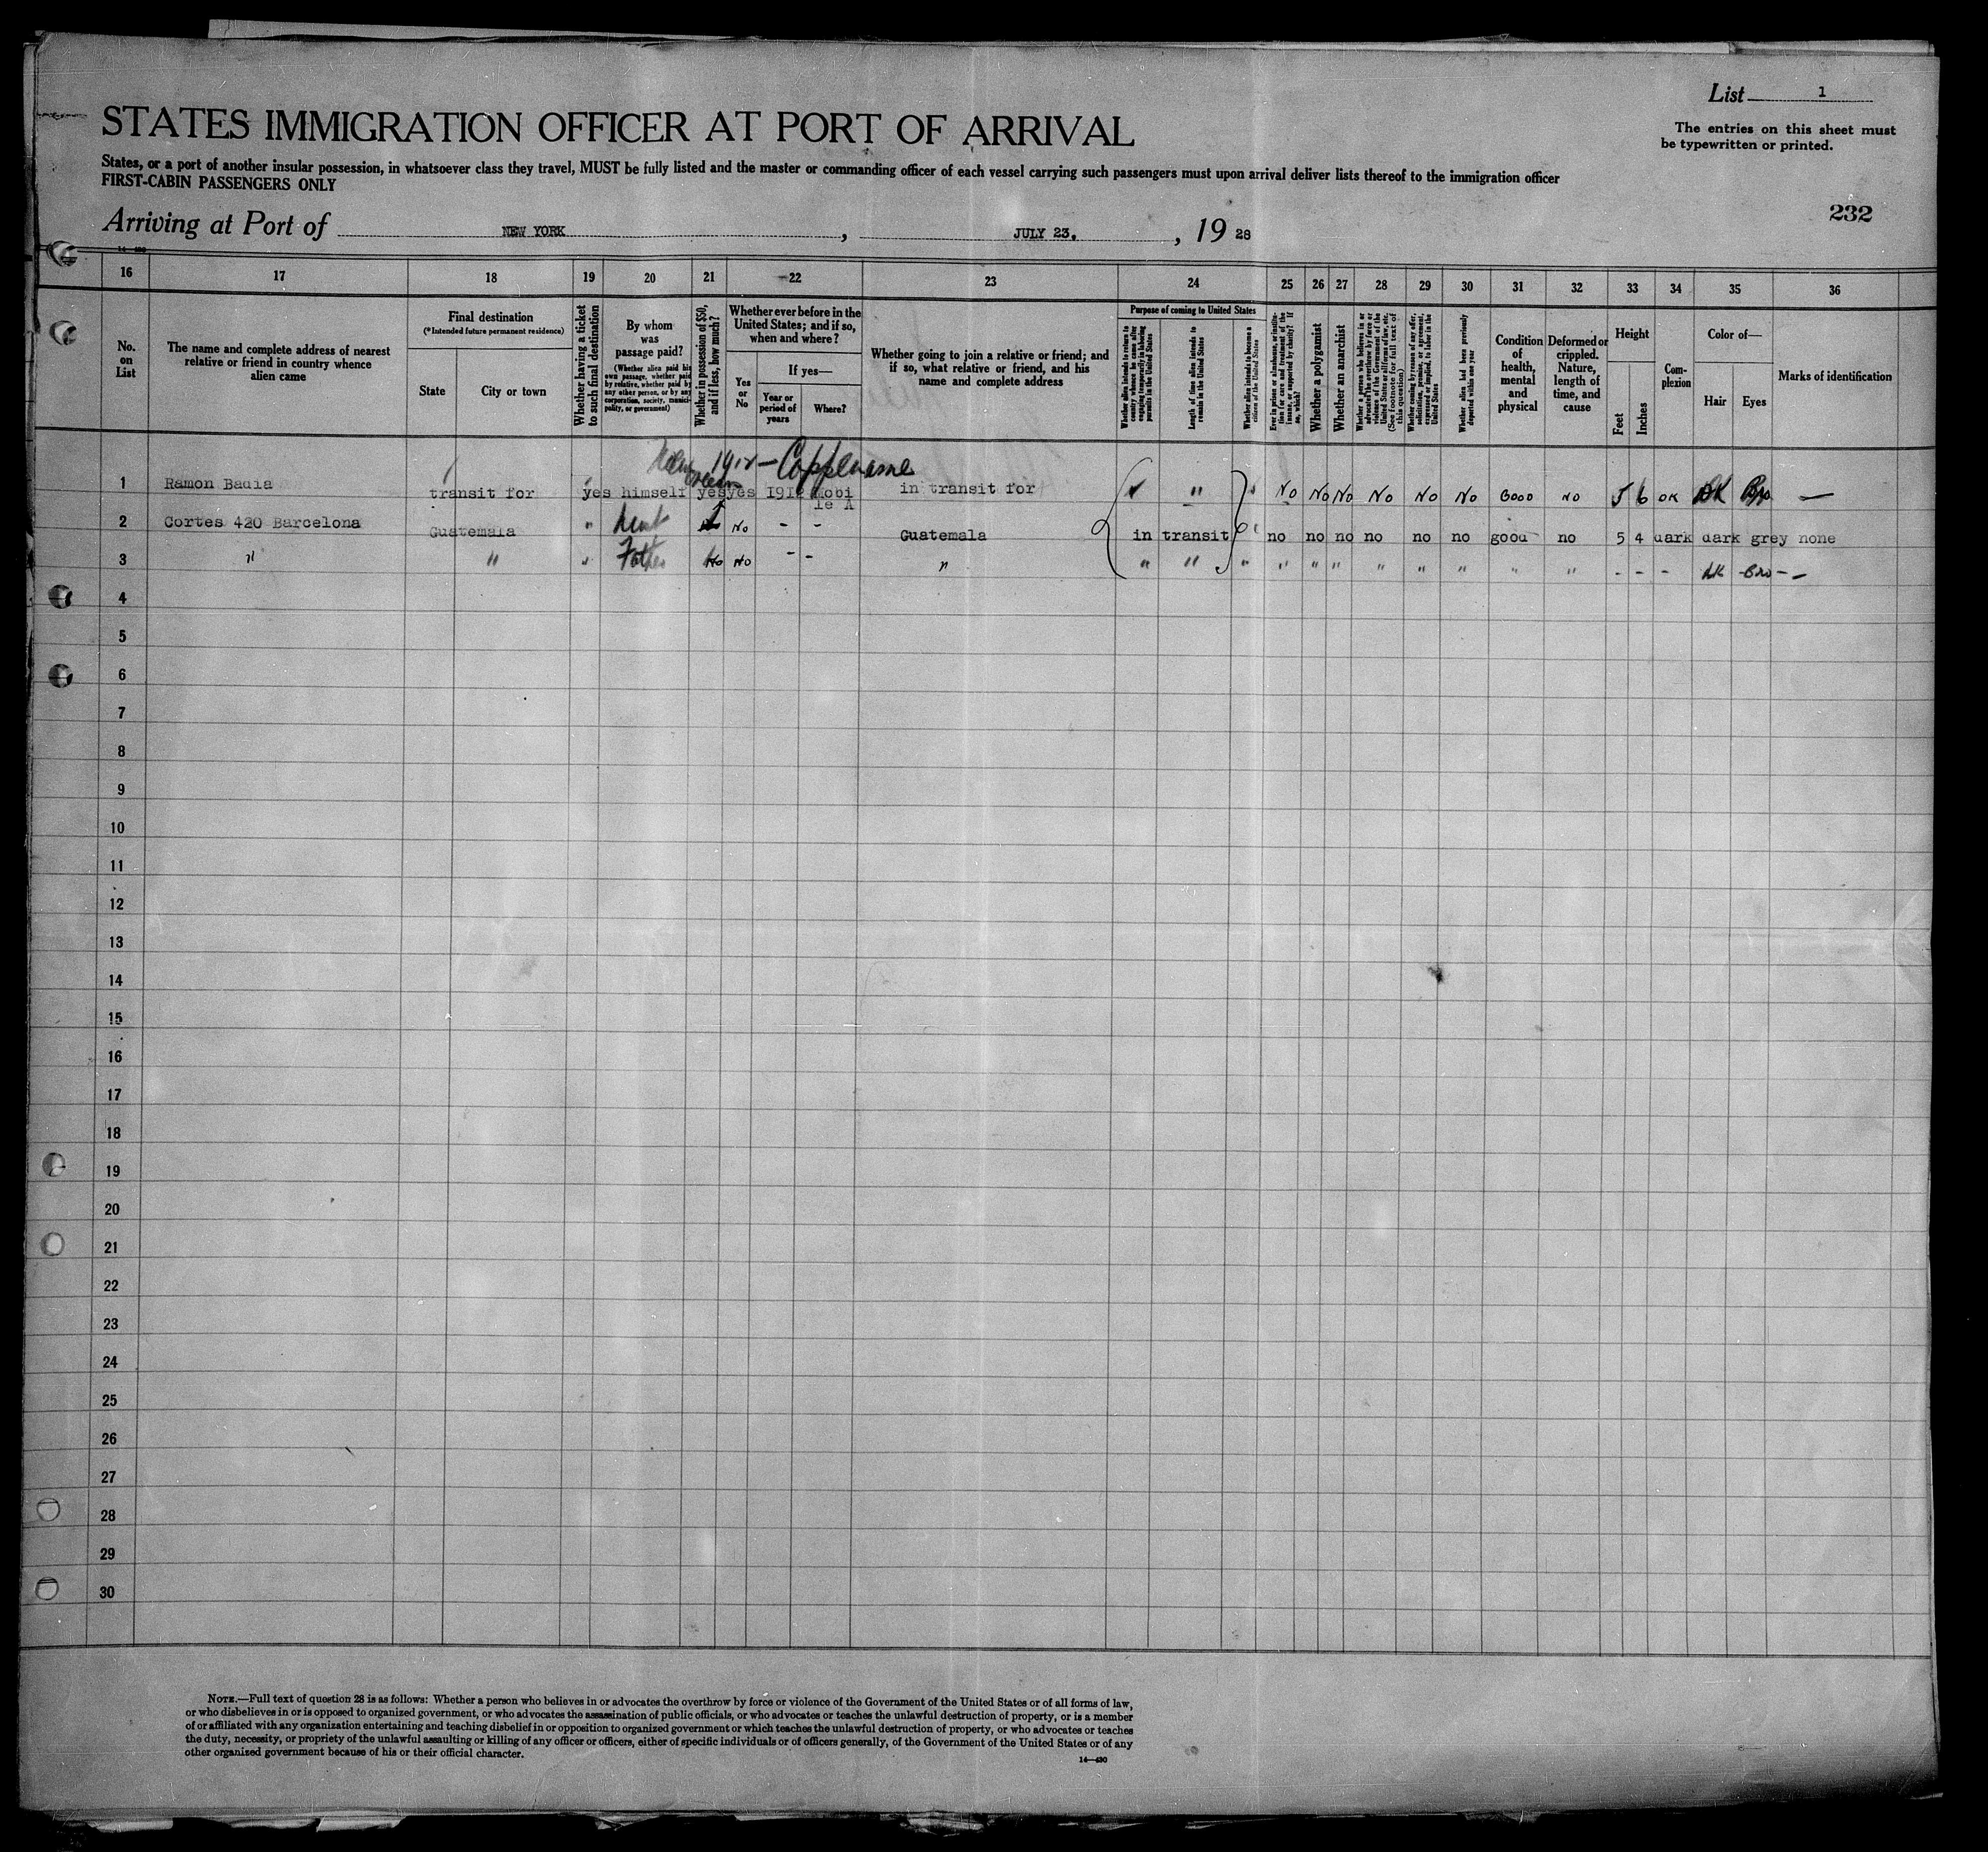 List 1
The entries on this sheet must
be typewritten or printed.
STATES IMMIGRATION OFFICER AT PORT OF ARRIVAL
States, or a port of another insular possession, in whatsoever class they travel, MUST be fully listed and the master or commanding officer of each vessel carrying such passengers must upon arrival deliver lists thereof to the immigration officer
FIRST-CABIN PASSENGERS ONLY
232
Arriving at Port of NEW YORK, JULY 23., 19 28
14-430
16 17 18 19 20 21 22 23 24 25 26 27 28 29 30 31 32 33 34 35 36
No.
on
List
The name and complete address of nearest
relative or friend in country whence
alien came
Final destination
(*Intended future permanent residence)
State
City or town
Whether having a ticket
to such final destination
By whom
was
passage paid?
(Whether alien paid his
own passage, whether paid
by relative, whether paid by
any other person, or by any
corporation, society, munici-
pality, or government)
Whether in possession of $50,
and if less, how much?
Whether ever before in the
United States; and if so,
when and where?
Yes
or
No
If yes—
Year or
period of
years
Where?
Whether going to join a relative or friend; and
if so, what relative or friend, and his
name and complete address
Purpose of coming to United States
Whether alien intends to return to
country whence he came after
engaging temporarily in laboring
pursuits in the United States
Length of time alien intends to
remain in the United States
Whether alien intends to become a
citizen of the United States
Ever in prison or almshouse, or institu-
tion for care and treatment of the
insane, or supported by charity? If
so, which?
Whether a polygamist
Whether an anarchist
Whether a person who believes in or
advocates the overthrow by force or
violence of the Government of the
United States or all forms of law, etc.
(See footnote for full text of
this question)
Whether coming by reason of any offer,
solicitation, promise, or agreement,
expressed or implied, to labor in the
United States
Whether alien had been previously
deported within one year
Condition
of
health,
mental
and
physical
Deformed or
crippled.
Nature,
length of
time, and
cause
Height
Feet
Inches
Com-
plexion
Color of—
Hair
Eyes
Marks of identification
New Orleans 1912 — Coppename
1 Ramon Badia transit for yes himself yes yes 1912 Mobi in transit for " " No No No No No No Good No 5 6 DK DK Bro —
le A
2 Cortes 420 Barcelona Guatemala " No - - Guatemala in transit no no no no no no good no 5 4 dark dark grey none
3 " " " Father No No - - " " " " " " " " " " " " - - - DK Bro - -
4
5
6
7
8
9
10
11
12
13
14
15
16
17
18
19
20
21
22
23
24
25
26
27
28
29
30
NOTE.—Full text of question 28 is as follows: Whether a person who believes in or advocates the overthrow by force or violence of the Government of the United States or of all forms of law,
or who disbelieves in or is opposed to organized government, or who advocates the assassination of public officials, or who advocates or teaches the unlawful destruction of property, or is a member
of or affiliated with any organization entertaining and teaching disbelief in or opposition to organized government or which teaches the unlawful destruction of property, or who advocates or teaches
the duty, necessity, or propriety of the unlawful assaulting or killing of any officer or officers, either of specific individuals or of officers generally, of the Government of the United States or of any
other organized government because of his or their official character.
14—430